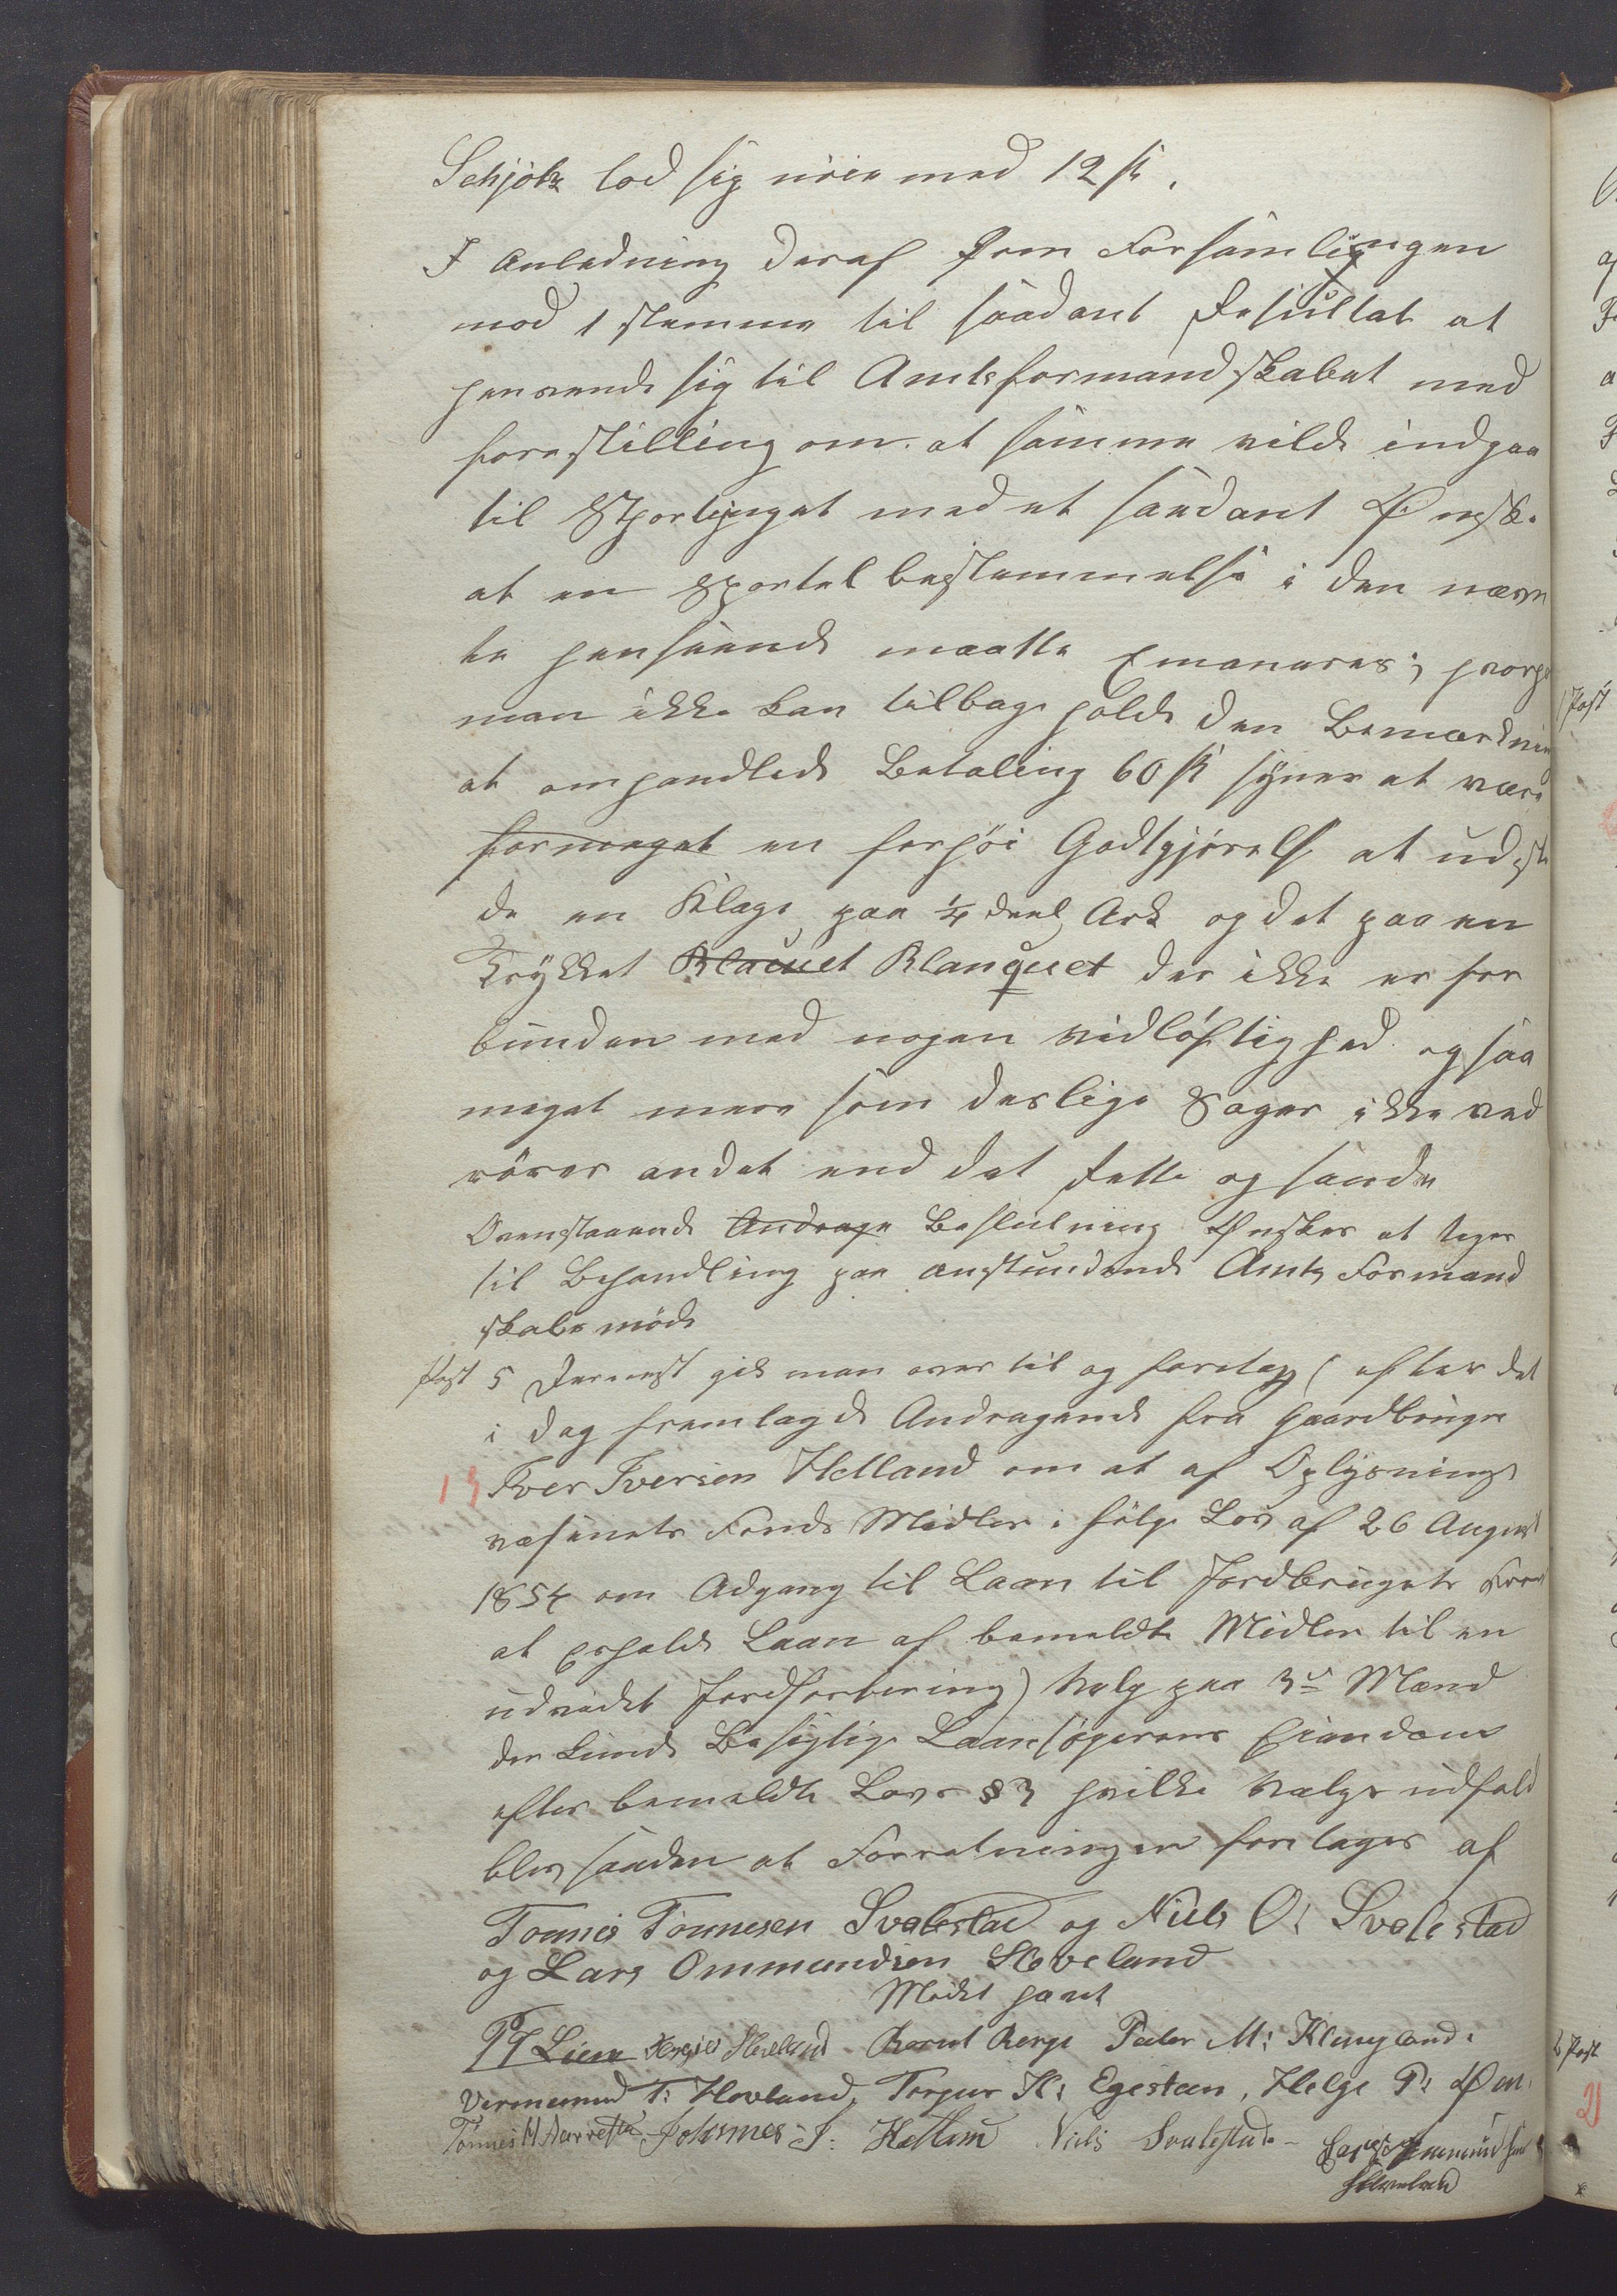 Schjötz lod sig nöie med 12 sk.
I Anledning deraf kom Forsamlingen
mod 1 stemme til saadant Resultat at
henvende sig til Amtsformandskabet med
forestilling om at samme vilde indgaa
til Storthinget med et saadant Ønske
at en Sportel bestemmelse i den nævn
te henseende maatte Emaneres;
man ikke kan tilbage holde den Bemærknin
at omhandlede Betaling 60 sk synes at være
formeget en forhöi Godtgjörelse at udste
de en Klage paa 1/4 deel Ark og det paa en
Trykket Blanuet Blanquet der ikke er for
bunden med nogen vidlöftighed og saa
meget mere som deslige Sager ikke ved
rörer andet end det Rette og sande
Ovenstaaende Andrage Beslutning Ønskes at tages
til Behandling paa anstundende Amts Formand
skabs möde
Post 5 Dernest gik man over til og foretog (efter det
i dag fremlagde Andragende fra Gaardbruger
13 Iver Iversen Helland om at af Oplysnings
væsenets Fonds Midler i fölge Lov af 26 August
1854 om Adgang til Laan til Jordbrugets Frem
at Erholde Laan af bemeldte Midler til en
udvidet Jordforbering) Valg paa 3de Mænd
der kunde Besigtige Laansögerens Eiendom
efter bemeldte Lovs § 3 hvilke Valgs udfald
blev saaden at Forretningen foretages af
Tönnes Tönnesen Svalestad og Niels O: Svalestad
og Lars Ommundsen Sleveland
Mödet hævet
Lien Helland Berent Berge Peder M: Klungland.
Vermund T: Hovland, Torger K: Egesteen, Helge P:
Tönnes Johannes J: Helland Niels Svalestad - Lars Ommundsen
Sleveland